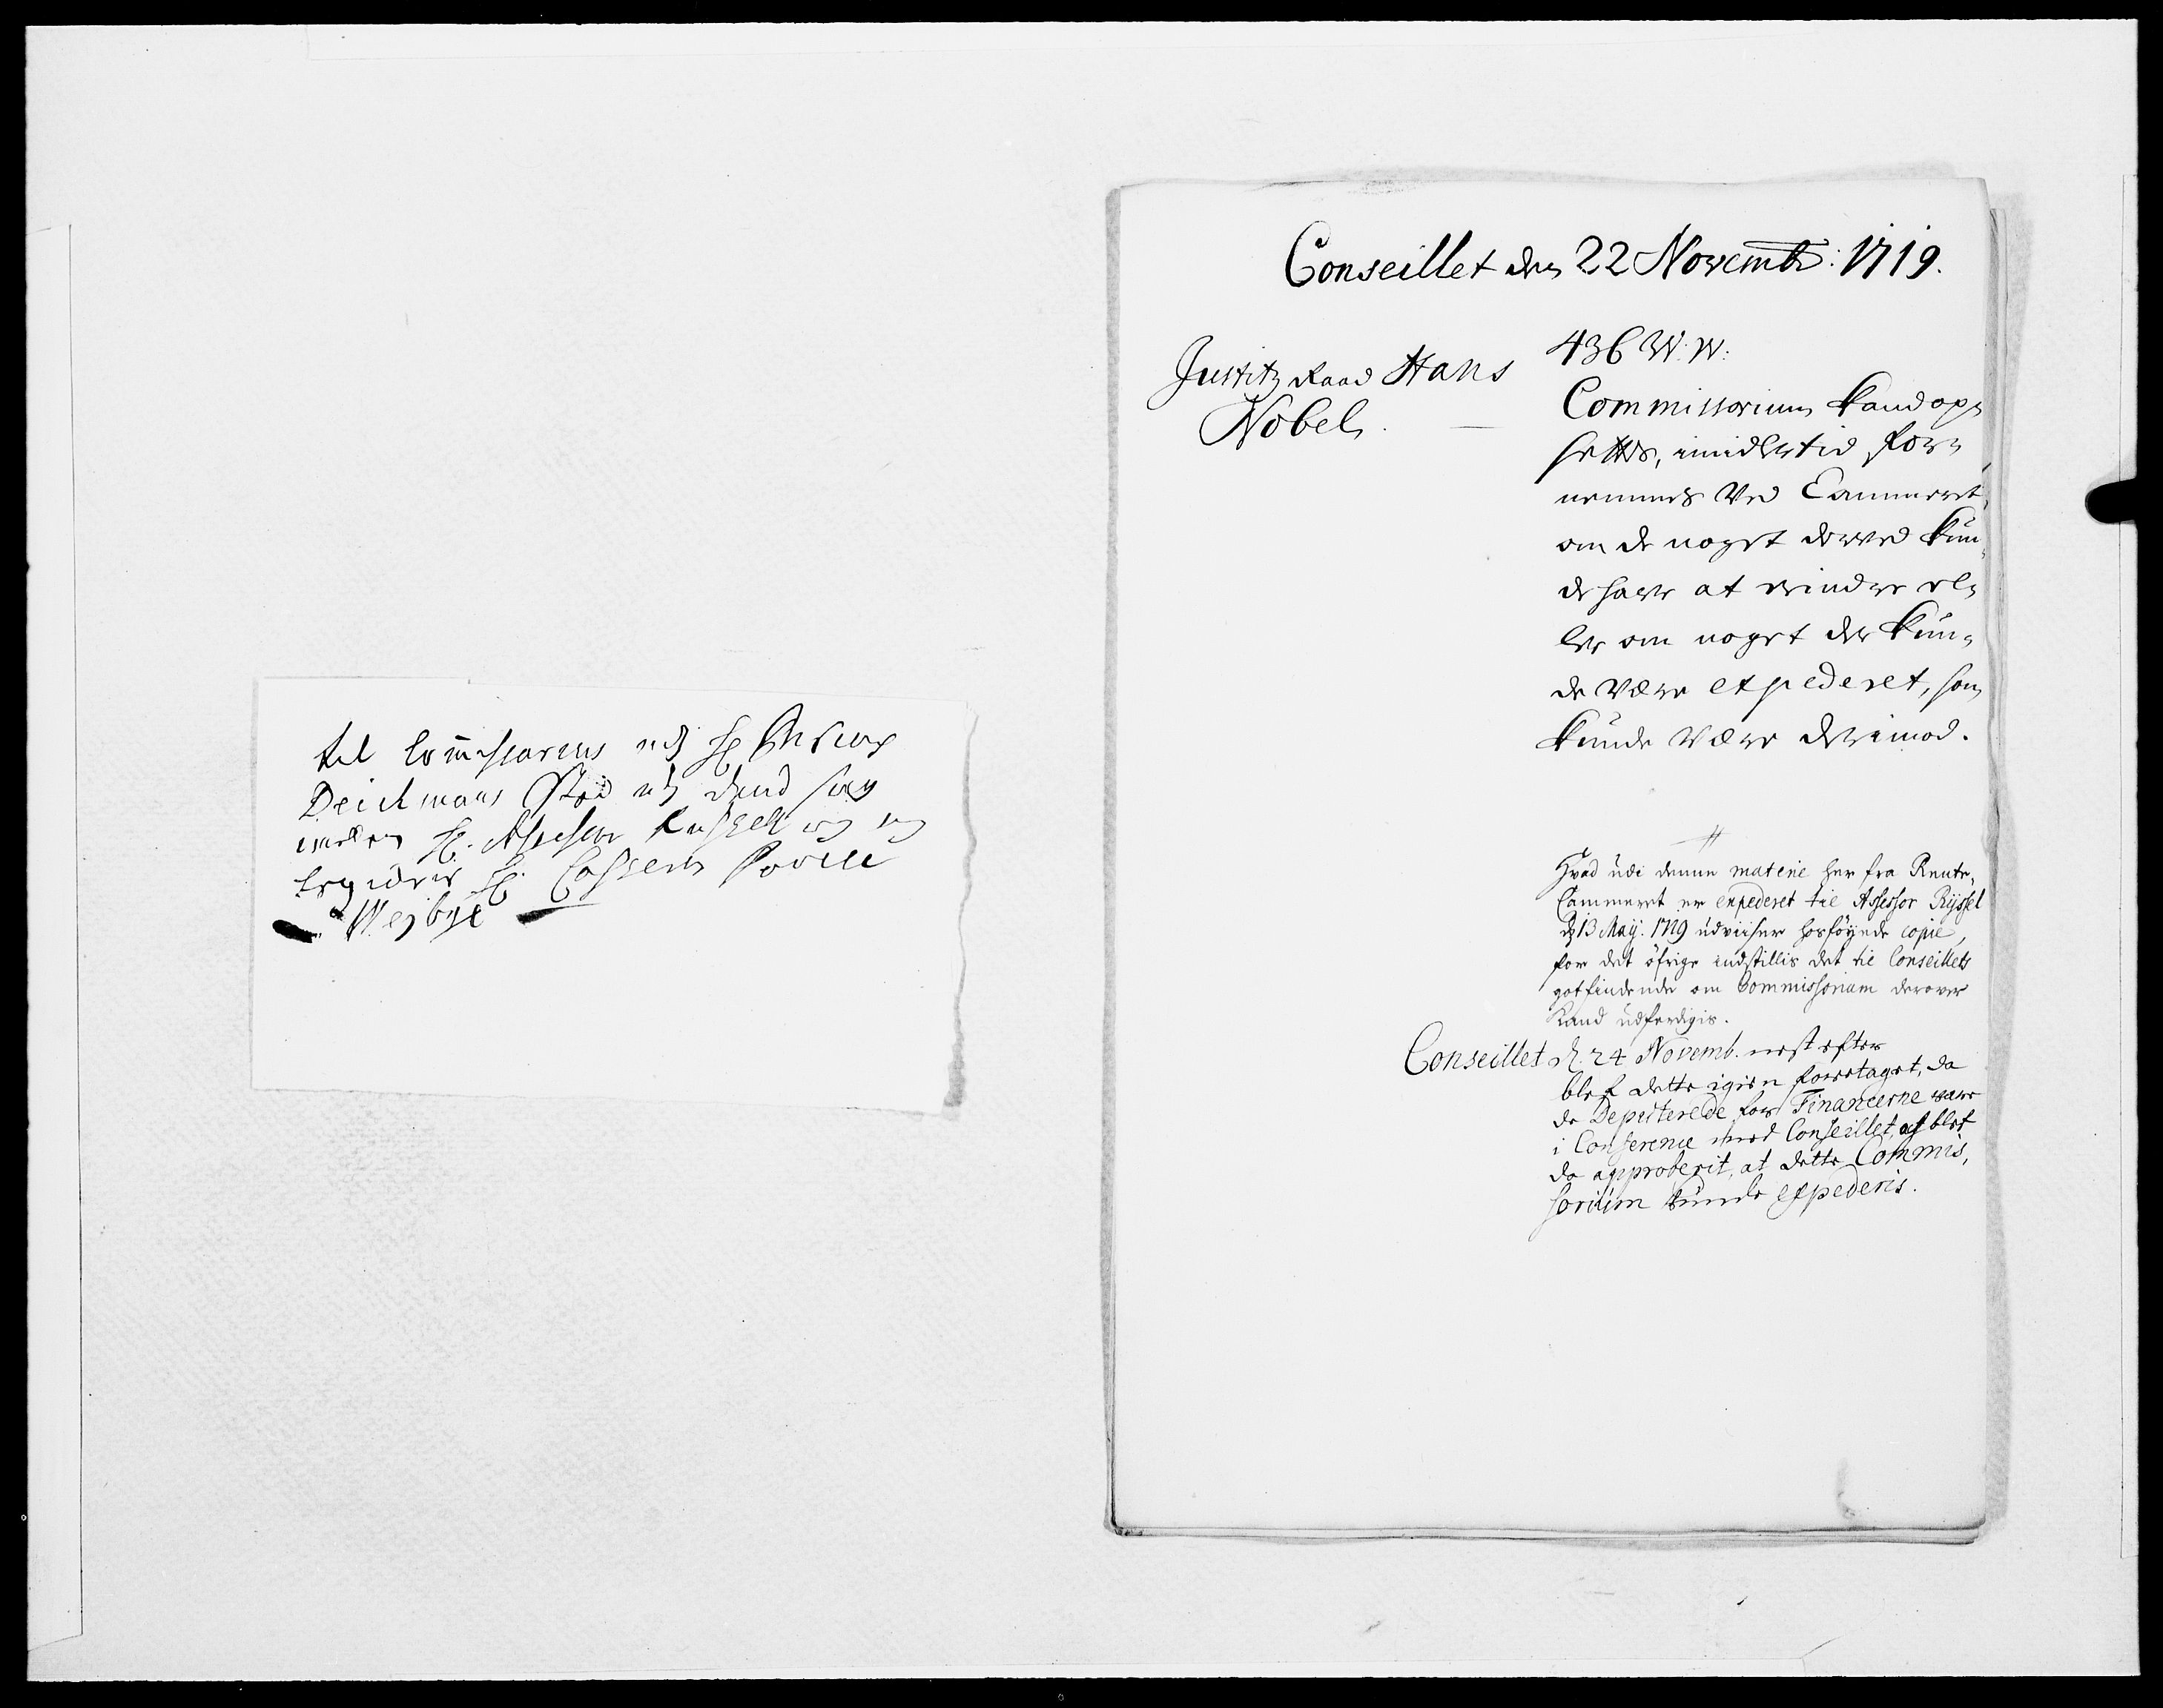 til Commissarius udj H.
Deichmans Stæd udj dend sag
imellem H. Assessor Russel og
H. Cassers Povel
Wejbye
Conseillet den 22 Novembr: 1719.
Justitz Raad Hans
Nobel.
436 W. W.
Commissorium kand op-
settes, imidlertid for-
nemmes ved Cammeret,
om de noget derved kun-
de have at erindre el-
ler om noget der kun-
de være expederet, som
kunde være derimod.
Hvad udi denne materie her fra Rente-
Cammeret er expederet til Assessor Rÿssel
d. 13 Maÿ. 1719 udviiser hosföÿede copie,
for det öfrige indstillis det til Conseillets
gotfindende om Commissorium derover
kand udferdigis.
Conseillet d. 24 Novemb. nest efter
blef dette igien foretaget, da
de Deputerede for Financerne vare
i Conference med Conseillet, og blef
da approberit, at dette Commis,
sorium kunde expederis.